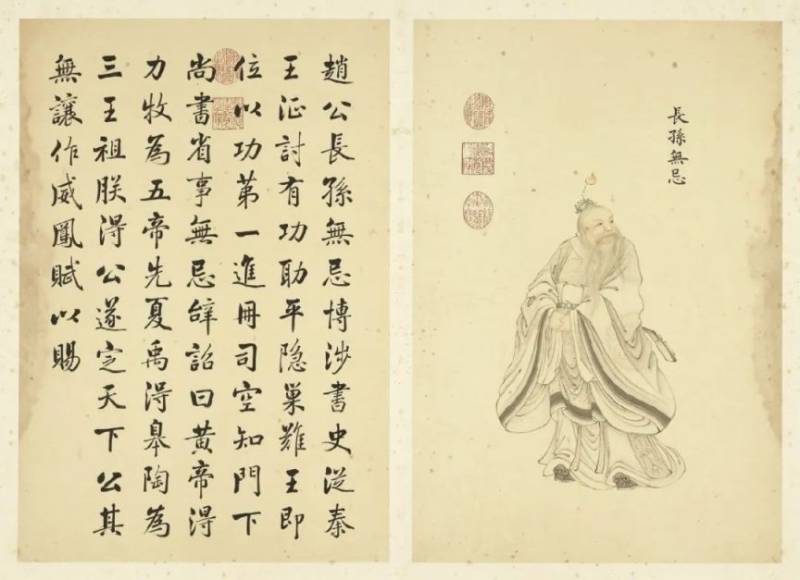 趙公長孫無忌博涉書史從秦
王征討有功助平隐巢難王即
位以功第一進冊司空知門下
尚書省事無忌辝詔曰黃帝得
力牧為五帝先夏禹得皋陶為
三王祖朕得公遂定天下公其
無讓作威鳳賦以賜
長孫無忌